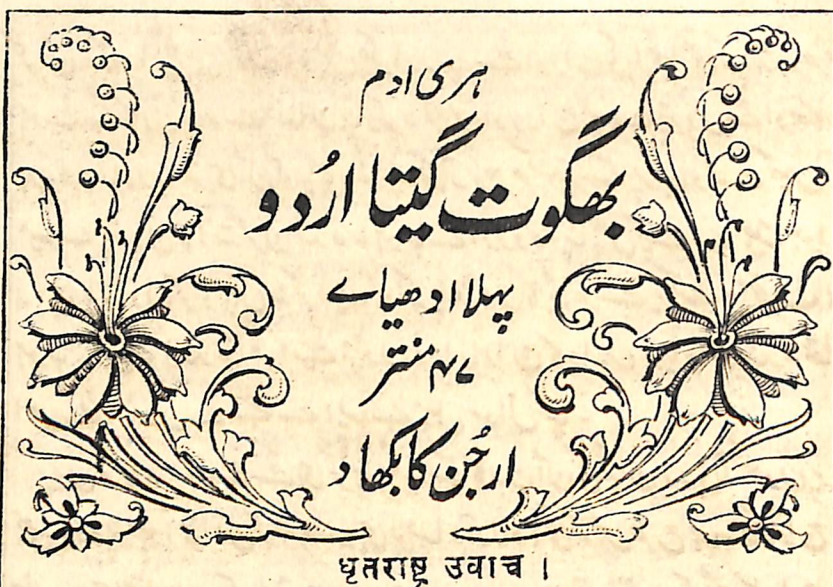 ہری اوم
بھگوت گیتا اردو
پہلا ادھیاے
۴۷ منتر
ارجُن کا بکھاد
धृतराष्ट्र उवाच ।